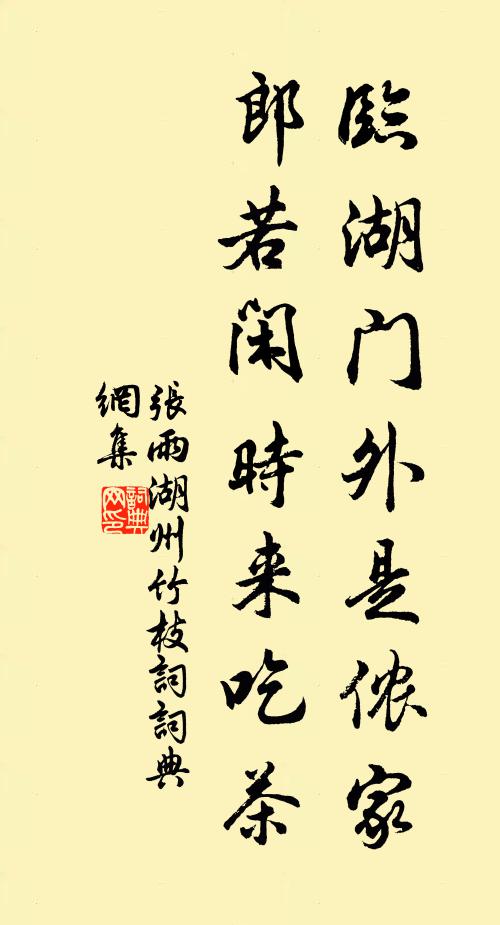 臨湖门外是侬家
郎若闲時来吃茶
張雨湖州竹枝詞詞典
網集
詞典网印